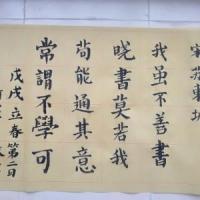 宋苏東坡
我虽不善書
晓書莫若我
苟能通其意
常謂不學可
戊戌立春第二日